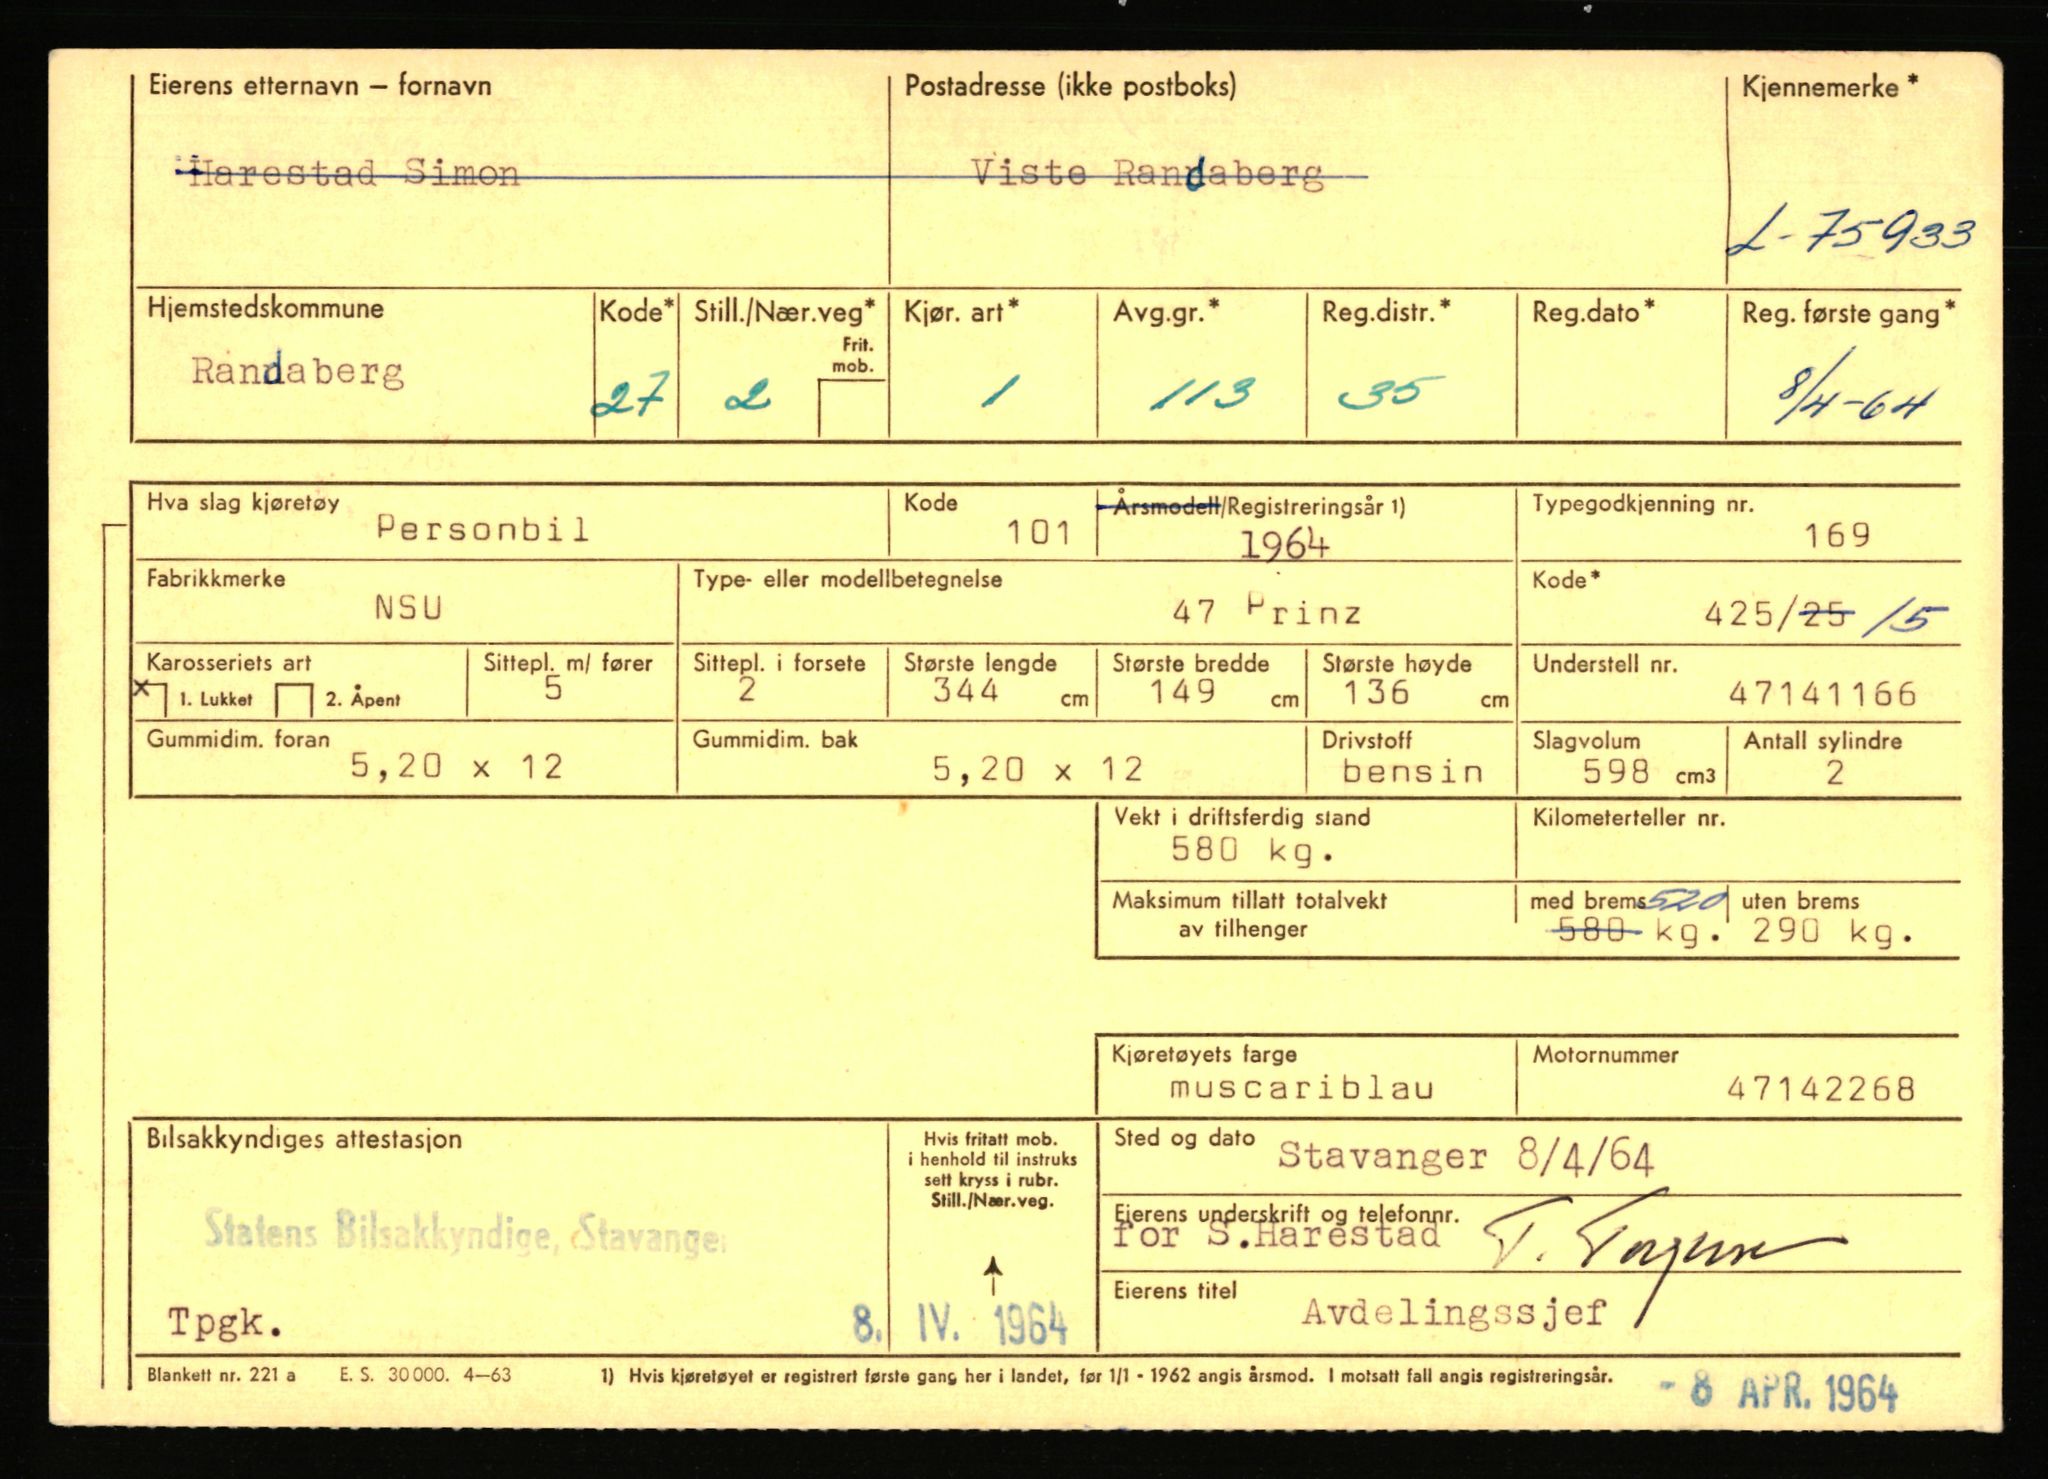 Eierens etternavn – fornavn
Postadresse (ikke postboks)
Kjennemerke*
Harestad Simon
Viste Randaberg
L-75933
Hjemstedskommune
Kode*
Still./Nær.veg*
Kjør. art*
Avg.gr.*
Reg.distr.*
Reg.dato*
Reg. første gang*
Frit. mob.
Randaberg
27
2
1
113
35
8/4-64
Hva slag kjøretøy
Kode
Årsmodell/Registreringsår 1)
Typegodkjenning nr.
Personbil
101
1964
169
Fabrikkmerke
Type- eller modellbetegnelse
Kode*
NSU
47 Prinz
425/25 /5
Karosseriets art
Sittepl. m/ fører
Sittepl. i forsete
Største lengde
Største bredde
Største høyde
Understell nr.
x 1. Lukket 2. Åpent
5
2
344 cm
149 cm
136 cm
47141166
Gummidim. foran
Gummidim. bak
Drivstoff
Slagvolum
Antall sylindre
5,20 x 12
5,20 x 12
bensin
598 cm3
2
Vekt i driftsferdig stand
Kilometerteller nr.
580 kg.
Maksimum tillatt totalvekt
av tilhenger
med brems 520
uten brems
580 kg.
290 kg.
Kjøretøyets farge
Motornummer
muscariblau
47142268
Bilsakkyndiges attestasjon
Hvis fritatt mob.
i henhold til instruks
sett kryss i rubr.
Still./Nær.veg.
Sted og dato
Stavanger 8/4/64
Statens Bilsakkyndige, Stavanger
Eierens underskrift og telefonnr.
for S.Harestad
Eierens titel
Avdelingssjef
Tpgk.
8. IV. 1964
Blankett nr. 221 a E. S. 30 000. 4–63
1) Hvis kjøretøyet er registrert første gang her i landet, før 1/1 - 1962 angis årsmod. I motsatt fall angis registreringsår.
- 8 APR. 1964